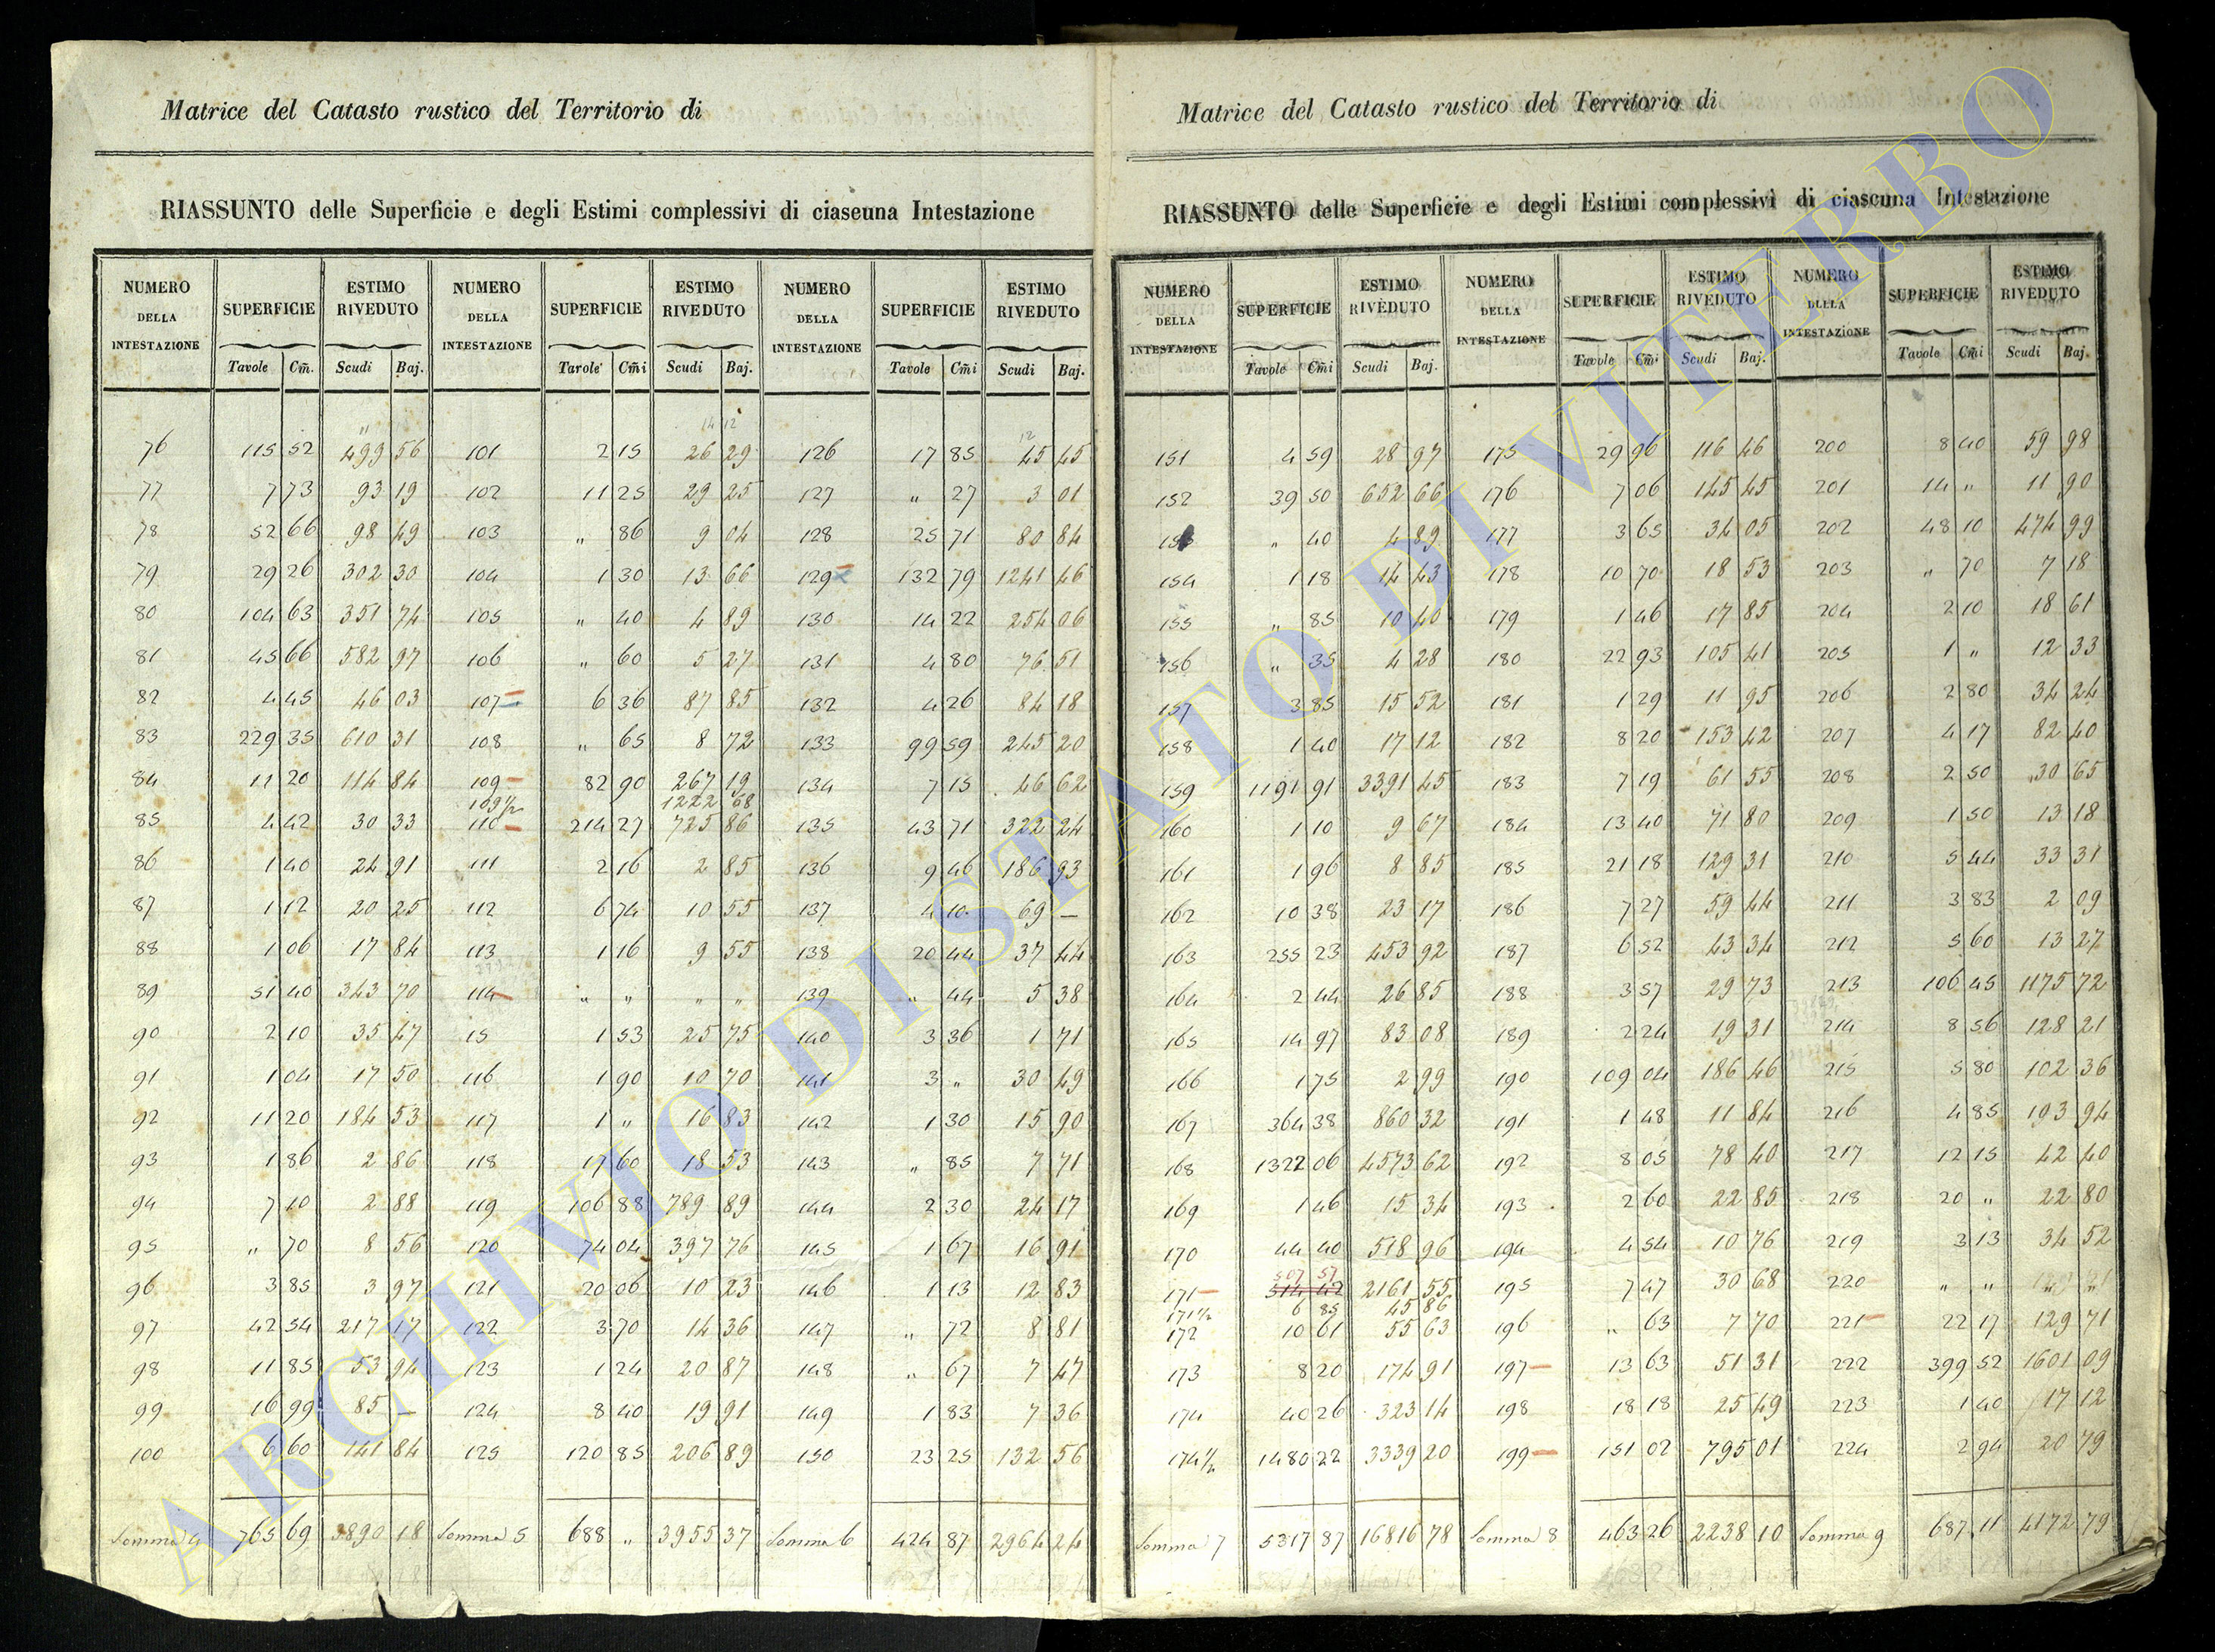 Matrice del Catasto rustico del Territorio di
RIASSUNTO delle Superficie e degli Estimi complessivi di ciascuna Intestazione
NUMERO DELLA INTESTAZIONE SUPERFICIE ESTIMO RIVEDUTO NUMERO DELLA INTESTAZIONE SUPERFICIE ESTIMO RIVEDUTO NUMERO DELLA INTESTAZIONE SUPERFICIE ESTIMO RIVEDUTO
Tavole Cm̃. Scudi Baj. Tavole Cm̃i Scudi Baj. Tavole Cm̃i Scudi Baj.
14 12
12
76 115 52 499 56 101 2 15 26 29 126 17 85 45 45
77 7 73 93 19 102 11 25 29 25 127 " 27 3 01
78 52 66 98 49 103 " 86 9 04 128 25 71 80 84
79 29 26 302 30 104 1 30 13 66 129 132 79 1241 46
80 104 63 351 74 105 " 40 4 89 130 14 22 254 06
81 45 66 582 97 106 " 60 5 27 131 4 80 76 51
82 4 45 46 03 107 6 36 87 85 132 4 26 84 18
83 229 35 610 31 108 " 65 8 72 133 99 59 245 20
84 11 20 114 84 109 82 90 267 19 134 7 15 46 62
109 1/2 1222 68
85 4 42 30 33 110 214 27 725 86 135 43 71 322 24
86 1 40 24 91 111 2 16 2 85 136 9 46 186 93
87 1 12 20 25 112 6 74 10 55 137 4 10 69 —
88 1 06 17 84 113 1 16 9 55 138 20 44 37 44
89 51 40 343 70 114 " " " " 139 " 44 5 38
90 2 10 35 47 115 1 53 25 75 140 3 36 1 71
91 1 04 17 50 116 1 90 10 70 141 3 " 30 49
92 11 20 184 53 117 1 " 16 83 142 1 30 15 90
93 1 86 2 86 118 17 60 18 53 143 " 85 7 71
94 7 10 2 88 119 106 88 789 89 144 2 30 24 17
95 " 70 8 56 120 74 04 397 76 145 1 67 16 91
96 3 85 3 97 121 20 06 10 23 146 1 13 12 83
97 42 54 217 17 122 3 70 14 36 147 " 72 8 81
98 11 85 53 94 123 1 24 20 87 148 " 67 7 47
99 16 99 85 — 124 8 40 19 91 149 1 83 7 36
100 6 60 141 84 125 120 85 206 89 150 23 25 132 56
Somma 4 765 69 3890 18 Somma 5 688 " 3955 37 Somma 6 424 87 2964 24
Matrice del Catasto rustico del Territorio di
RIASSUNTO delle Superficie e degli Estimi complessivi di ciascuna Intestazione
NUMERO DELLA INTESTAZIONE SUPERFICIE ESTIMO RIVEDUTO NUMERO DELLA INTESTAZIONE SUPERFICIE ESTIMO RIVEDUTO NUMERO DELLA INTESTAZIONE SUPERFICIE ESTIMO RIVEDUTO
Tavole Cm̃i Scudi Baj. Tavole Cm̃i Scudi Baj. Tavole Cm̃i Scudi Baj.
151 4 59 28 97 175 29 96 116 46 200 8 40 59 98
152 39 50 652 66 176 7 06 145 45 201 14 " 11 90
153 " 40 4 89 177 3 65 34 05 202 48 10 474 99
154 1 18 14 43 178 10 70 18 53 203 " 70 7 18
155 " 85 10 40 179 1 46 17 85 204 2 10 18 61
156 " 35 4 28 180 22 93 105 41 205 1 " 12 33
157 3 85 15 52 181 1 29 11 95 206 2 80 34 24
158 1 40 17 12 182 8 20 153 42 207 4 17 82 40
159 1191 91 3391 45 183 7 19 61 55 208 2 50 30 65
160 1 10 9 67 184 13 40 71 80 209 1 50 13 18
161 1 96 8 85 185 21 18 129 31 210 5 44 33 31
162 10 38 23 17 186 7 27 59 44 211 3 83 2 09
163 255 23 453 92 187 6 52 43 34 212 5 60 13 27
164 2 44 26 85 188 3 57 29 73 213 106 45 1175 72
165 14 97 83 08 189 2 24 19 31 214 8 56 128 21
166 1 75 2 99 190 109 04 186 46 215 5 80 102 36
167 364 38 860 32 191 1 48 11 84 216 4 85 103 94
168 1322 06 4573 62 192 8 05 78 40 217 12 15 42 40
169 1 46 15 34 193 2 60 22 85 218 20 " 22 80
170 44 40 518 96 194 4 54 10 76 219 3 13 34 52
507 57
171 514 42 2161 55 195 7 47 30 68 220 " "
171 1/2 6 85 45 86
172 10 61 55 63 196 " 63 7 70 221 22 17 129 71
173 8 20 174 91 197 13 63 51 31 222 399 52 1601 09
174 40 26 323 14 198 18 18 25 49 223 1 40 17 12
174 1/2 1480 22 3339 20 199 151 02 795 01 224 2 94 20 79
Somma 7 5317 87 16816 78 Somma 8 463 26 2238 10 Somma 9 687 11 4172 79
ARCHIVIO DI STATO DI VITERBO